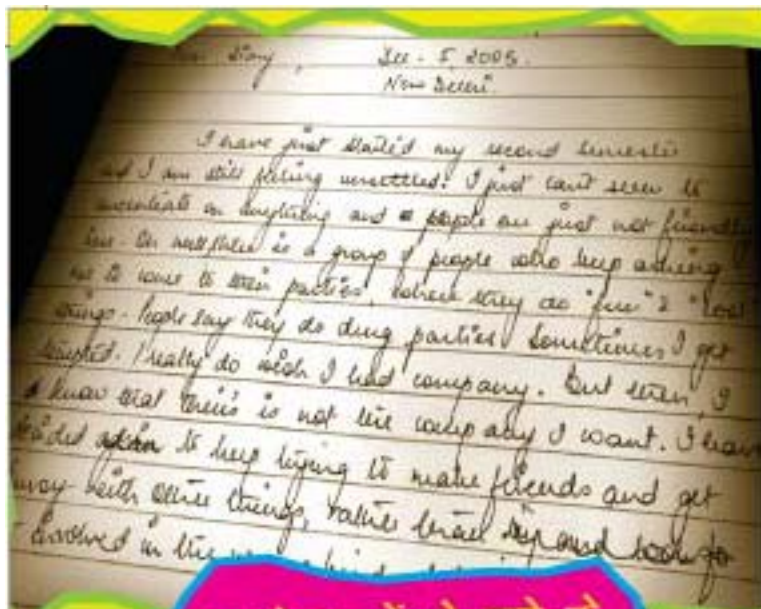 Diary, Dec - 5, 2005.
New Delhi.
I have just started my second semester
and I am still feeling unsettled! I just can't seem to
concentrate on anything and people are just not friendly
here. there is a group of people who keep asking
me to come to their parties, where they do "fun" & "cool"
things. People say they do drug parties. Sometimes I get
tempted. I really do wish I had company. But then, I
know that theirs is not the company I want. I have
decided to keep trying to make friends and get
with other things, rather than
involved in the